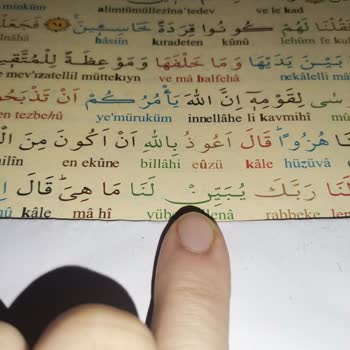 minküm alimtümüllezîna'tedev ve le kad
قُلْنَا لَهُمْ كُونُوا قِرَدَةً خَاسِئِينَ ٦٥ فَجَعَلْ
lnâhâ hâsiîn kıradeten kûnû lehüm fe kul
بَيْنَ يَدَيْهَا وَمَا خَلْفَهَا وَمَوْعِظَةً لِلْمُتَّقٖي
e mev'ızatellil müttekıyn ve mâ halfehâ nekâlelli mâ
سٰى لِقَوْمِهٖٓ اِنَّ اللّٰهَ يَأْمُرُكُمْ اَنْ تَذْبَحُ
en tezbehû ye'mürüküm innellahe li kavmihî mû
نَا هُزُوًاۜ قَالَ اَعُوذُ بِاللّٰهِ اَنْ اَكُونَ مِنَ الْ
hilîn en ekûne billâhi eûzü kâle hüzüvâ
لَنَا رَبَّكَ يُبَيِّنْ لَنَا مَا هِيَۜ قَالَ
kâle mâ hî yüb lenâ rabbeke